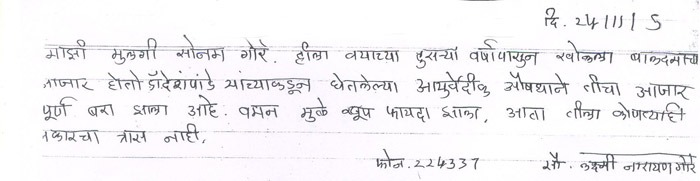 दि. २४/११/५
माझी मुलगी सोनम गोरे. हीला वयाच्या दुसऱ्या वर्षापासुन खोकला बालदमाचा
आजार होता डॉ देशपांडे यांच्याकडून घेतलेल्या आयुर्वेदीक औषधाने तीचा आजार
पूर्ण बरा झाला आहे. वमन मुळे खूप फायदा झाला, आता तीला कोणत्याही
प्रकारचा त्रास नाही.
फोन. २२४३३७ सौ. लक्ष्मी नारायण गोरे